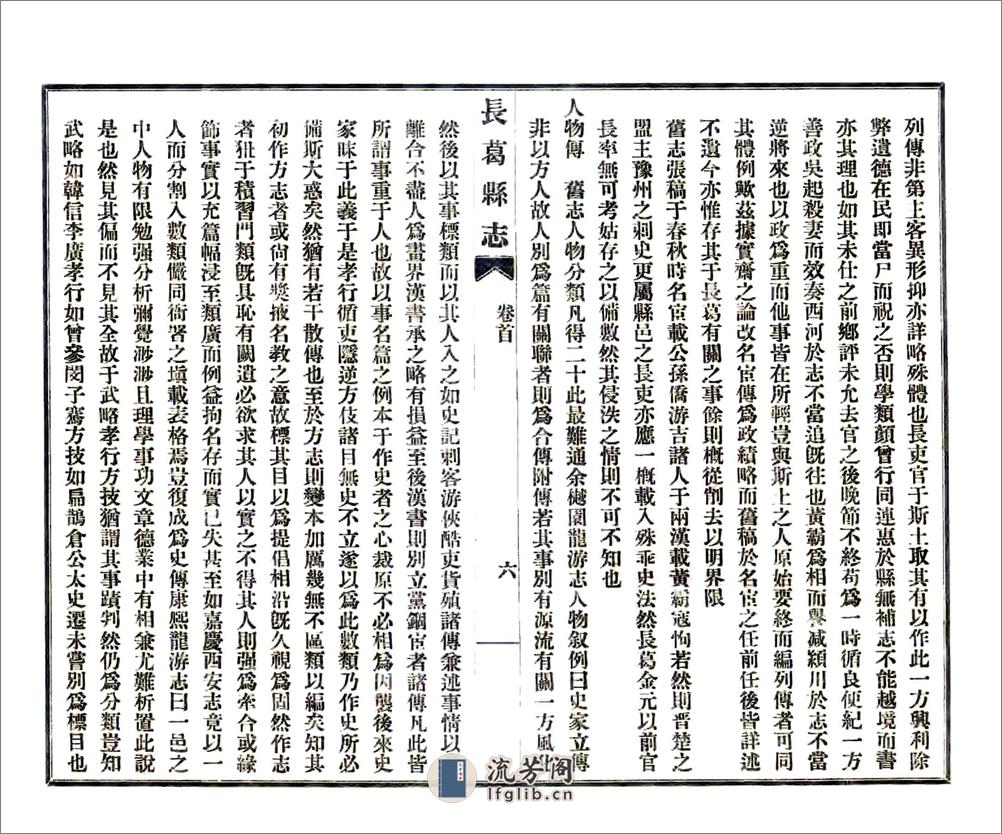 列傳非第主客異形抑亦詳略殊體也長吏官于斯土取其有以作此一方興利除
弊遺德在民即當尸而祝之否則學類顏曾行同連惠於縣無補志不能越境而書
亦其理也如其未仕之前鄉評未允去官之後晚節不終苟爲一時循良便紀一方
善政吳起殺妻而效奏西河於志不當追旣往也黃霸爲相而譽减潁川於志不當
逆將來也以政爲重而他事皆在所輕豈與斯土之人原始要終而編列傳者可同
其體例歟茲據實齋之論改名宦傳爲政績略而舊稿於名宦之任前任後皆詳述
不遺今亦惟存其于長葛有關之事餘則槪從削去以明界限
舊志張稿于春秋時名宦載公孫僑游吉諸人于兩漢載黃霸寇恂若然則晋楚之
盟主豫州之刺史更屬縣邑之長吏亦應一槪載入殊乖史法然長葛金元以前官
長率無可考姑存之以備數然其侵泆之情則不可不知也
人物傳　舊志人物分類凡得二十此最難通余樾園龍游志人物叙例曰史家立傳
非以方人故人別爲篇有關聯者則爲合傳附傳若其事別有源流有關一方風
長葛縣志
卷首
六
然後以其事標類而以其人入之如史記刺客游俠酷吏貨殖諸傳兼述事情以
離合不盡人爲畫界漢書承之略有損益至後漢書則別立黨錮宦者諸傳凡此皆
所謂事重于人也故以事名篇之例本于作史者之心裁原不必相爲因襲後來史
家昧于此義于是孝行循吏隱逆方伎諸目無史不立遂以爲此數類乃作史所必
備斯大惑矣然猶有若干散傳也至於方志則變本加厲幾無不區類以編矣知其
初作方志者或尙有獎掖名教之意故標其目以爲提倡相沿旣久視爲固然作志
者狃于積習門類旣具恥有闕遺必欲求其人以實之不得其人則强爲牽合或緣
飾事實以充篇幅浸至類廣而例益拘名存而實已失甚至如嘉慶西安志竟以一
人而分割入數類儼同衙署之塡載表格焉豈復成爲史傳康熙龍游志曰一邑之
中人物有限勉强分析彌覺渺渺且理學事功文章德業中有相兼尤難析置此說
是也然見其偏而不見其全故于武略孝行方技猶謂其事蹟判然仍爲分類豈知
武略如韓信李廣孝行如曾參閔子騫方技如扁鵲倉公太史遷未嘗別爲標目也
流芳阁
lfglib.cn